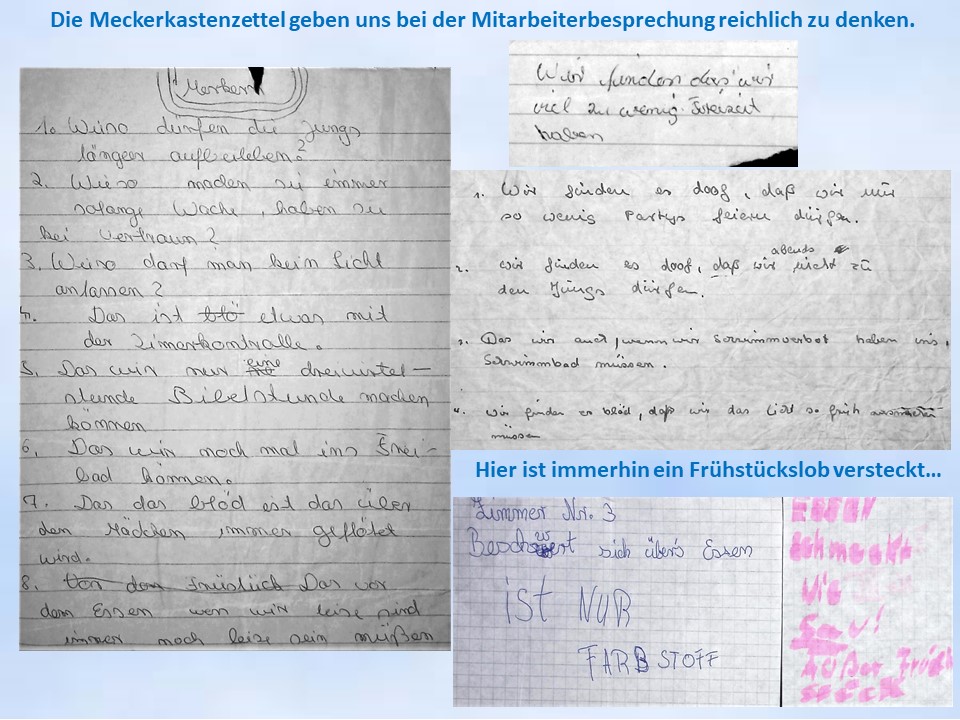 Die Meckerkastenzettel geben uns bei der Mitarbeiterbesprechung reichlich zu denken.
Merkern
1. Wiso dürfen die Jungs
länger aufbleiben?
2. Wieso machen sie immer
solange Wache, haben sie
kei Vertraun?
3. Wiso darf man kein Licht
anlassen?
4. Das ist blö etwas mit
der Zimerkontralle.
5. Das wir nur eine dreiviertel-
stunde Bibelstunde machen
können
6. Das wir noch mal ins Frei-
bad können.
7. Das das blöd ist das über
den Mädchen immer geflötet
wird.
8. Von dem Früstück Das vor
dem Essen wen wir leise sind
immer noch leise sein müßen
Wir finden das wir
viel zu wenig Freizeit
haben
1. Wir finden es doof, daß wir nur
so wenig Partys feiern dürfen.
2. Wir finden es doof, daß wir abends nicht zu
den Jungs dürfen.
3. Das wir auch, wenn wir Schwimmverbot haben ins
Schwimmbad müssen.
4. Wir finden es blöd, daß wir das Licht so früh
müssen
Hier ist immerhin ein Frühstückslob versteckt…
Zimmer Nr. 3
Beschwert sich über's Essen
ist NUR
FARBSTOFF
Essen
schmeckt
wie
Sau!
Außer Früh
stück